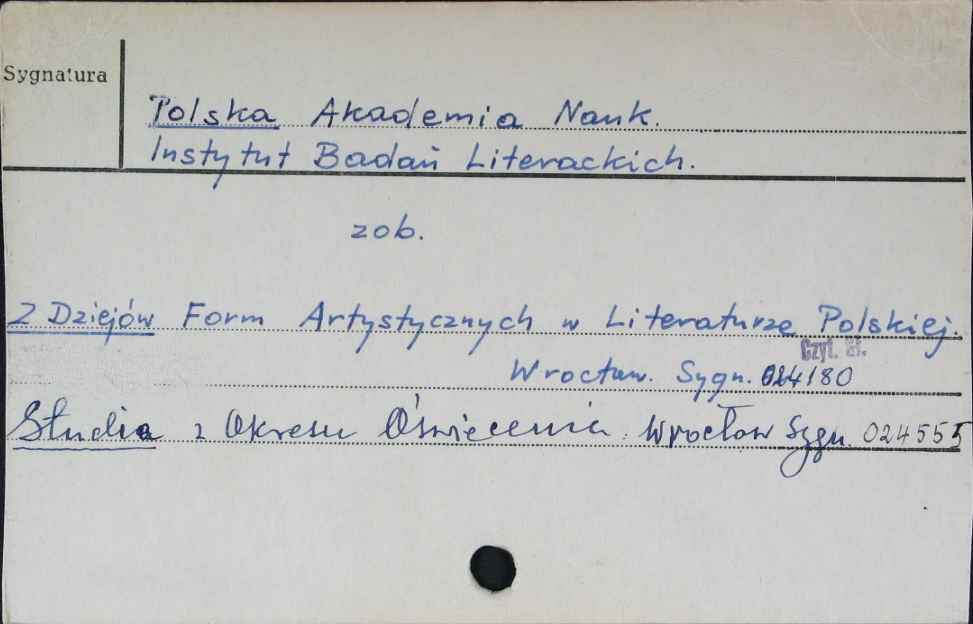 Sygnatura
Polska Akademia Nauk.
Instytut Badań Literackich.
zob.
Z Dziejów Form Artystycznych w Literaturze Polskiej.
Czyt. Gł.
Wrocław. Sygn. 024180
Studia z Okresu Oświecenia. Wrocław Sygn. 024555